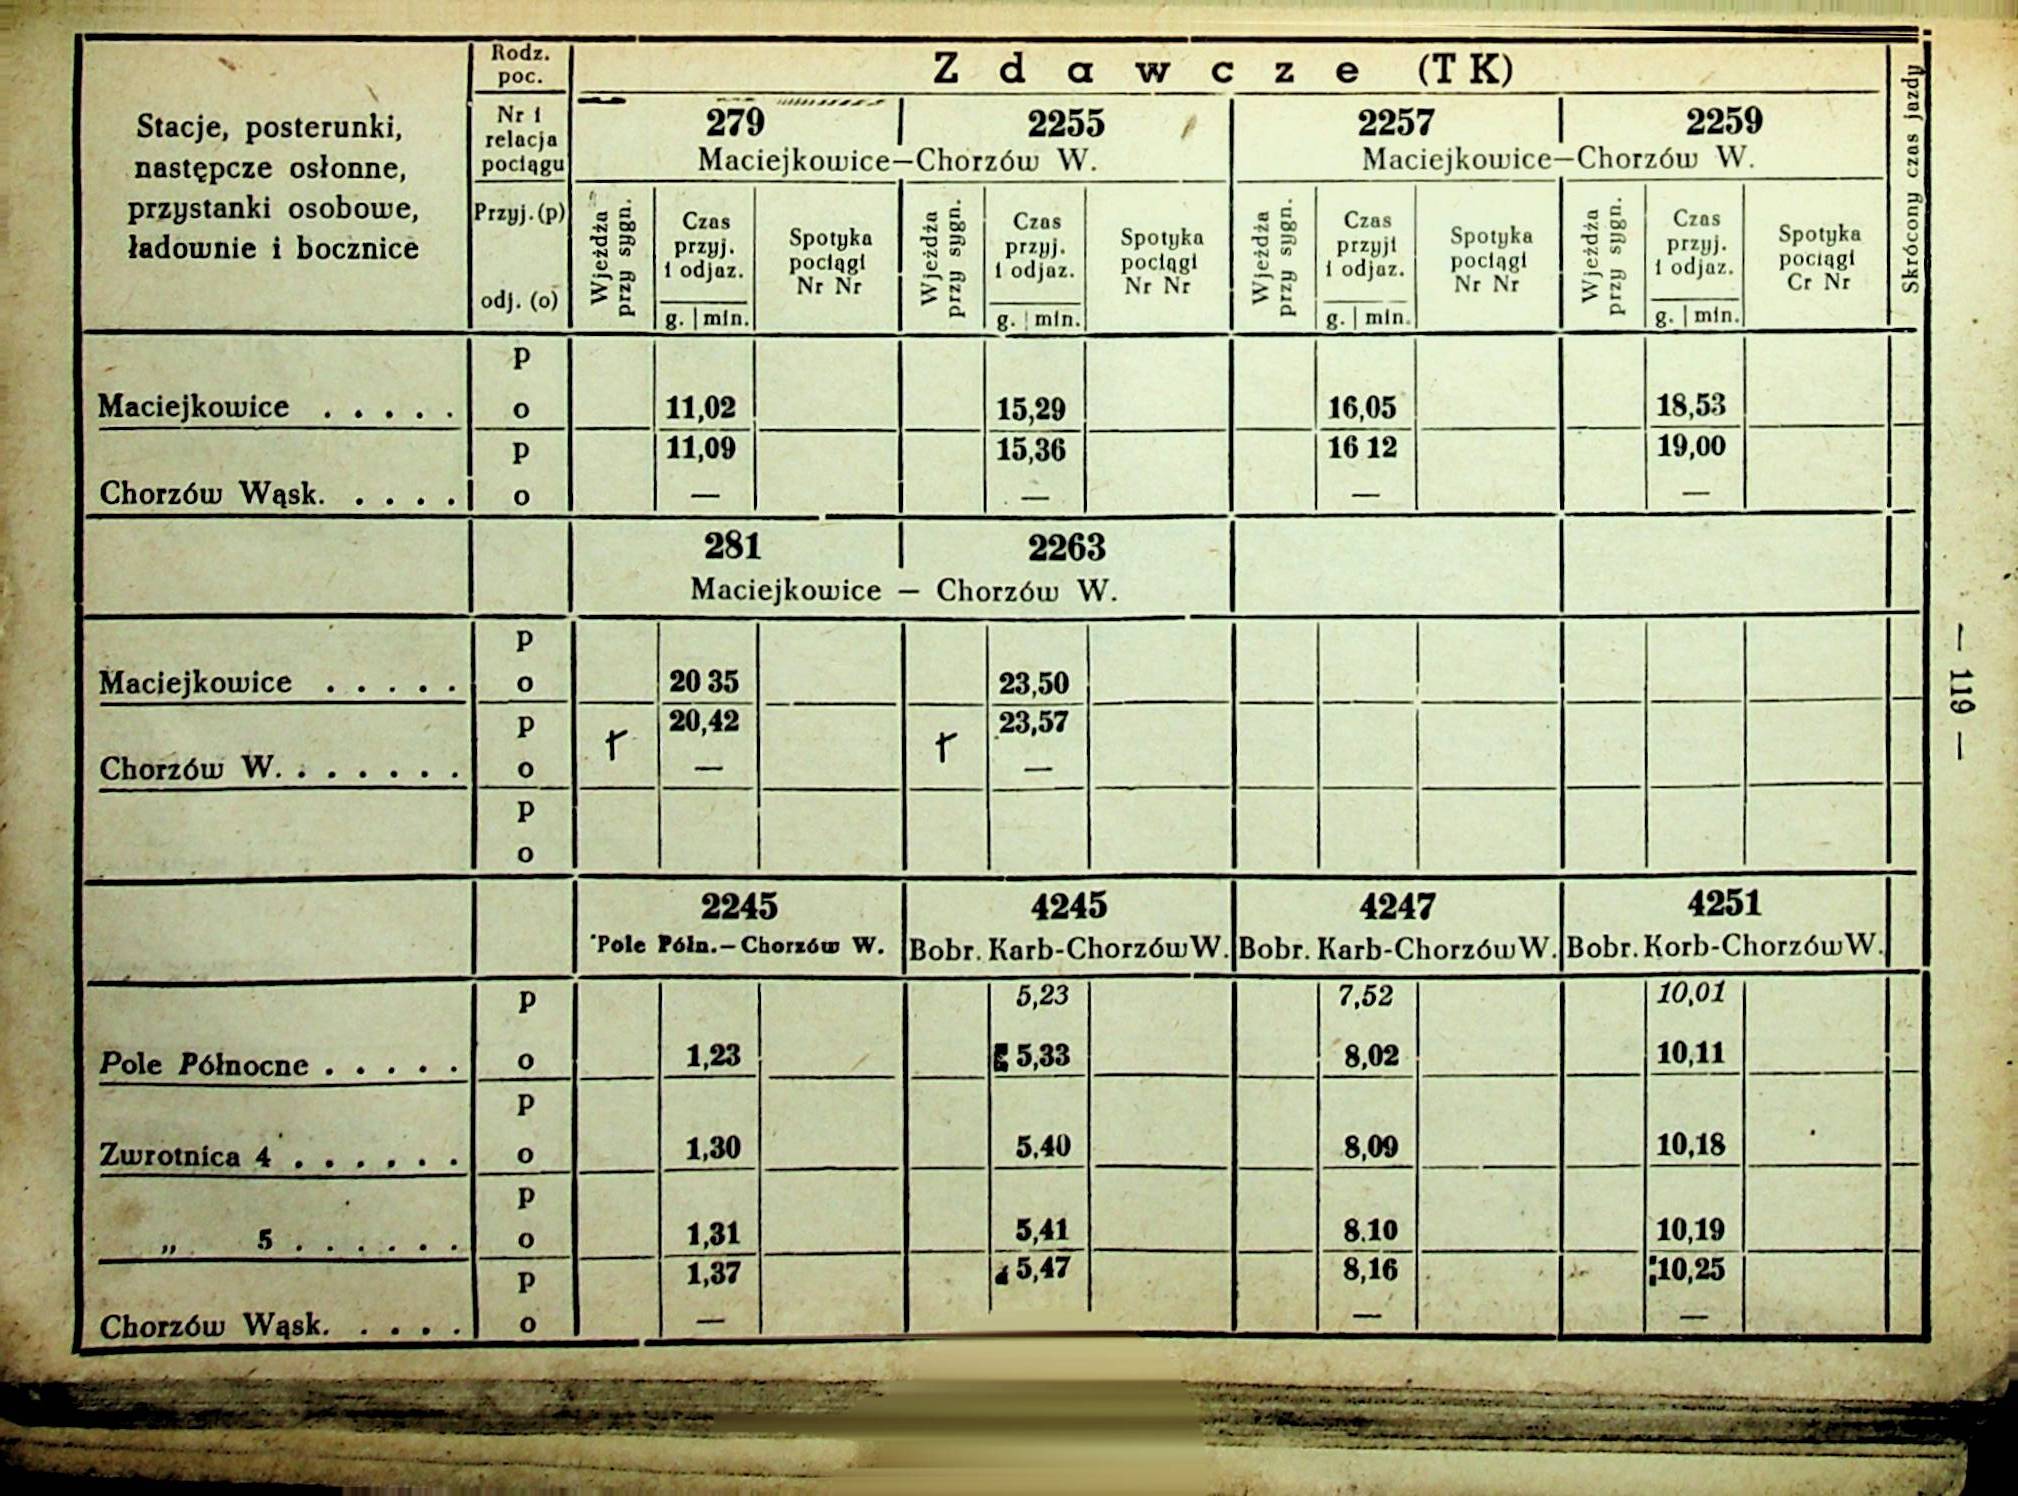 Stacje, posterunki,
następcze osłonne,
przystanki osobowe,
ładownie i bocznice
Rodz.
poc.
Nr i
relacja
pociągu
Przyj. (p)
odj. (o)
Zdawcze (TK)
279 2255 2257 2259
Maciejkowice—Chorzów W. Maciejkowice—Chorzów W.
Wjeżdża przy sygn. Czas przyj. i odjaz. g. | min. Spotyka pociągi Nr Nr
Wjeżdża przy sygn. Czas przyj. i odjaz. g. | min. Spotyka pociągi Nr Nr
Wjeżdża przy sygn. Czas przyji i odjaz. g. | min. Spotyka pociągi Nr Nr
Wjeżdża przy sygn. Czas przyj. i odjaz. g. | min. Spotyka pociągi Cr Nr
Skrócony czas jazdy
p
Maciejkowice . . . . . o 11,02 15,29 16,05 18,53
p 11,09 15,36 16 12 19,00
Chorzów Wąsk. . . . . o — — — —
281 2263
Maciejkowice — Chorzów W.
p
Maciejkowice . . . . . o 20 35 23,50
p 20,42 23,57
Chorzów W. . . . . . . o — —
p
o
2245 4245 4247 4251
Pole Półn.—Chorzów W. Bobr. Karb-Chorzów W. Bobr. Karb-Chorzów W. Bobr. Korb-Chorzów W.
p 5,23 7,52 10,01
Pole Północne . . . . . o 1,23 5,33 8,02 10,11
p
Zwrotnica 4 . . . . . . o 1,30 5.40 8,09 10,18
p
„ 5 . . . . . . o 1,31 5,41 8.10 10,19
p 1,37 5,47 8,16 10,25
Chorzów Wąsk. . . . . o — — —
— 119 —